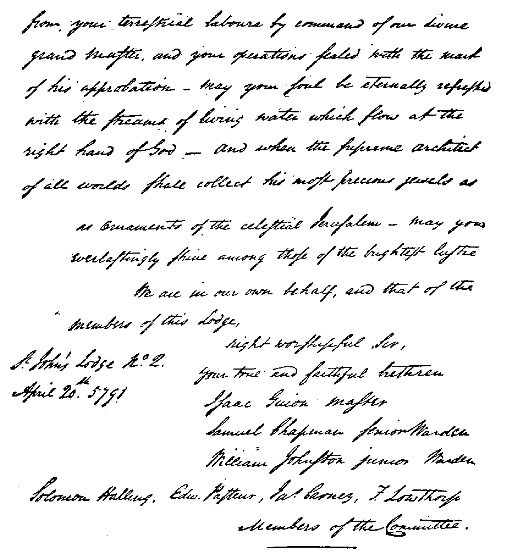 from, your terrestrial labours by command of our divine
grand Master, and your operations sealed with the mark
of his approbation — may your soul be eternally refreshed
with the streams of living water which flow at the
right hand of God — And when the supreme architect
of all worlds shall collect his most precious jewels as
as ornaments of the celestial Jerusalem — may you
everlastingly shine among those of the brightest lustre
We are in our own behalf, and that of the
members of this Lodge,
right worshipful Sir,
St. John's Lodge No. 2.
your true and faithful brethren
April 20th. 5791
Isaac Guion master
Samuel Chapman senior Warden
William Johnston junior Warden
Solomon Halling, Edw. Pasteur, Jas. Carney, F. Lowthorp
Members of the Committee.